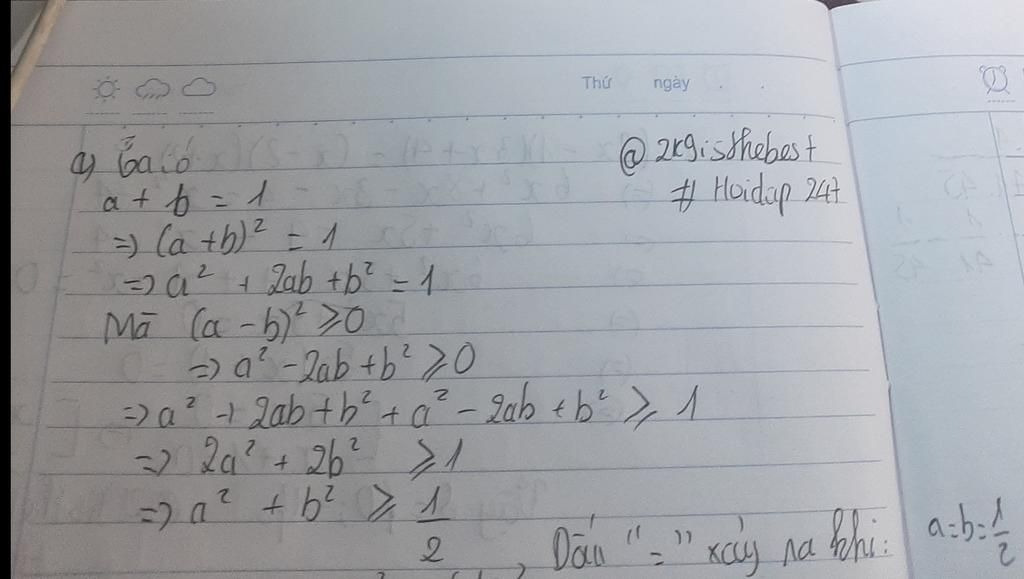 Thứ ngày
a) Ta có
@2k9isthebest
a + b = 1
# Hoidap 247
=> (a + b)² = 1
=> a² + 2ab + b² = 1
Mà (a - b)² ≥ 0
=> a² - 2ab + b² ≥ 0
=> a² + 2ab + b² + a² - 2ab + b² ≥ 1
=> 2a² + 2b² ≥ 1
=> a² + b² ≥ 1/2
Dấu "=" xảy ra khi: a=b=1/2